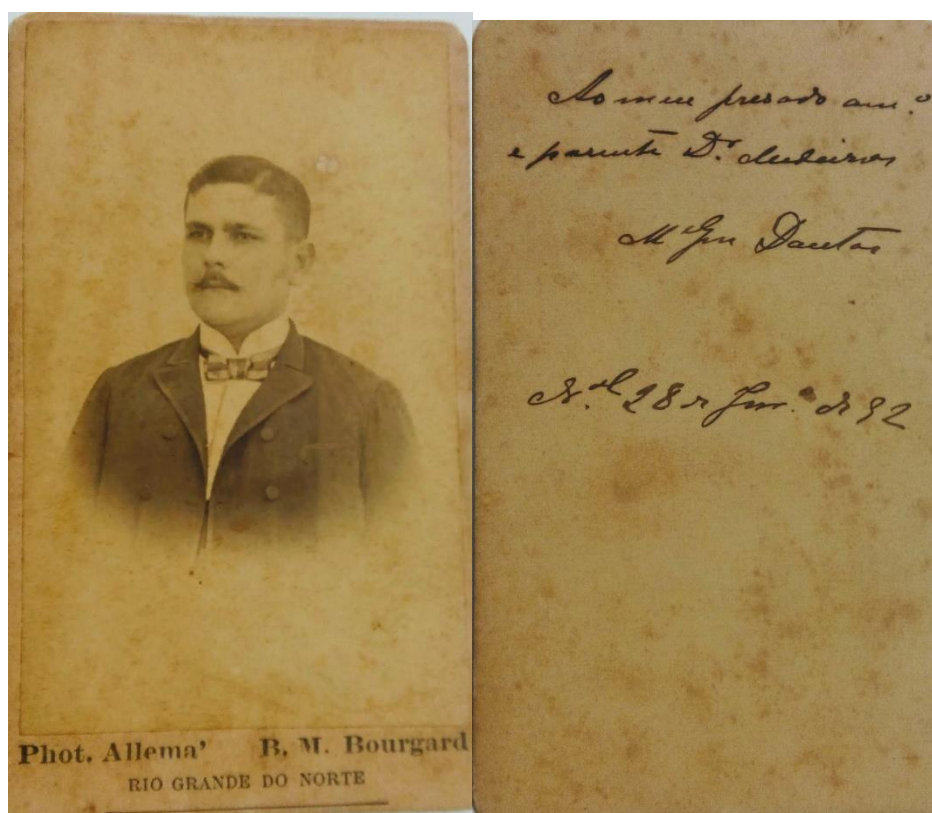 Phot. Allema' B. M. Bourgard
RIO GRANDE DO NORTE
Ao meu presado am.º
e parente Dr. Medeiros
Mel Gm Dantas
N.al 28 de Jan.º de 92